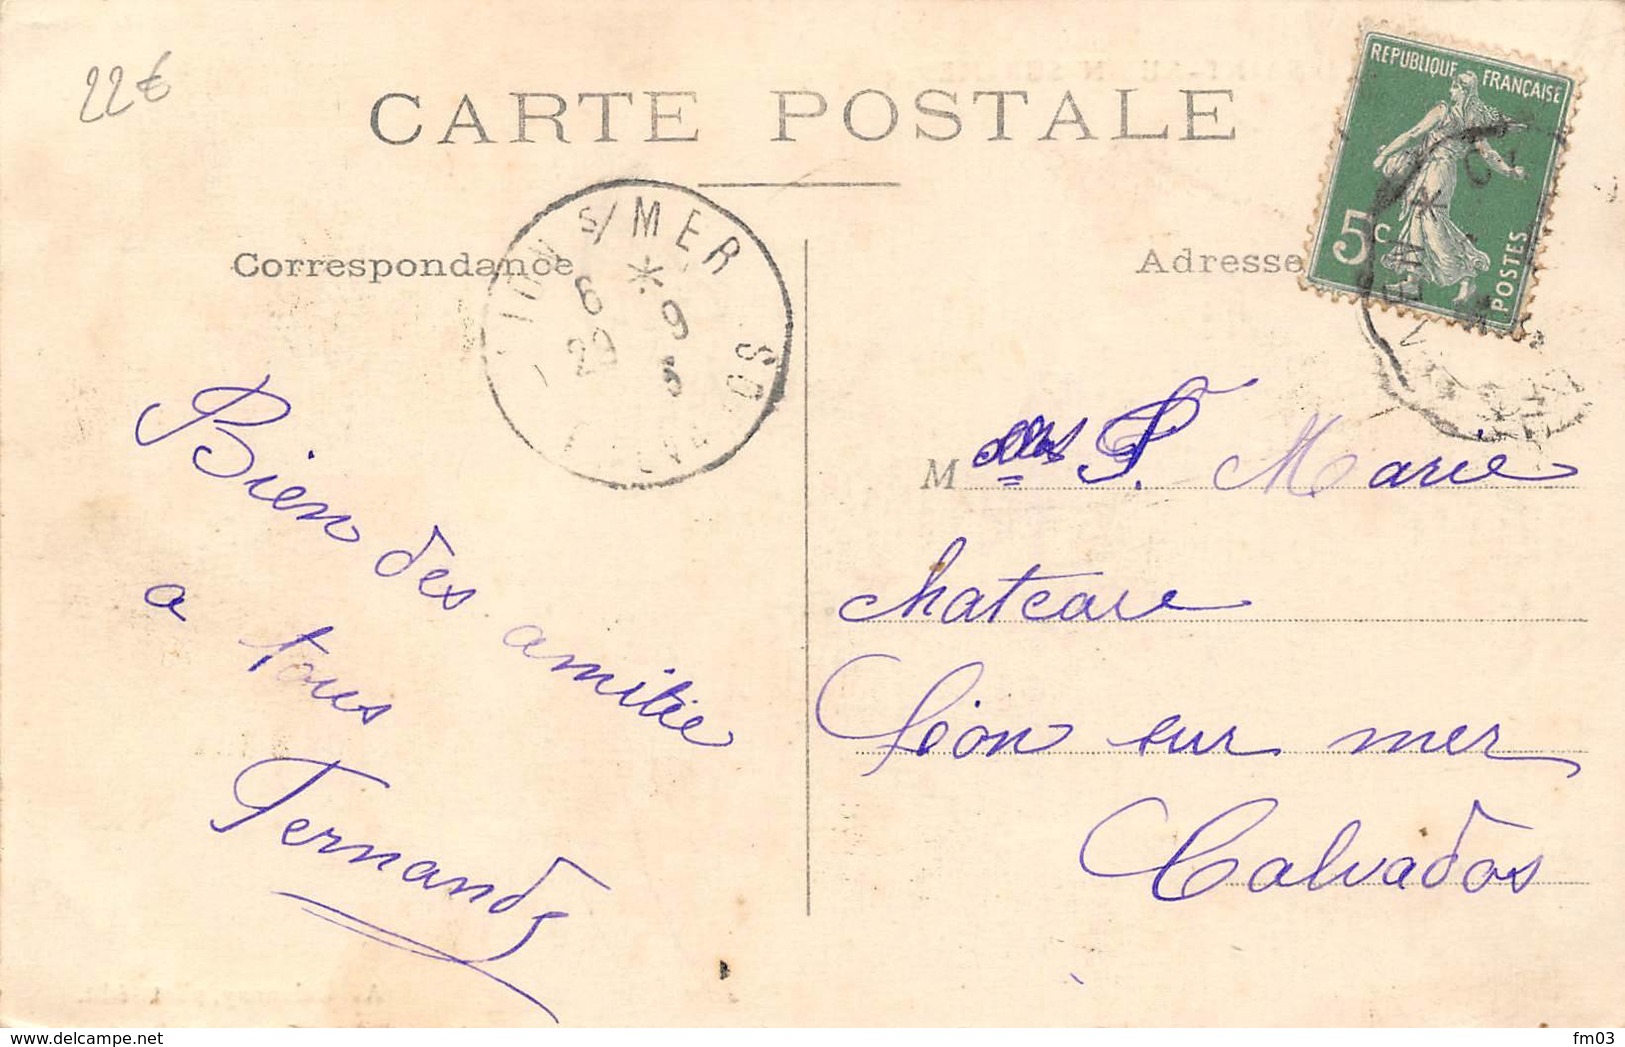 22€
CARTE POSTALE
REPUBLIQUE FRANÇAISE
5c
POSTES
Correspondance
Adresse
S/MER
6 * 9
29 5
CALVADOS
Bien des amitie
a tous
Fernand
Mlles P. Marie
chateau
Léon sur mer
Calvados
www.delcampe.net
fm03